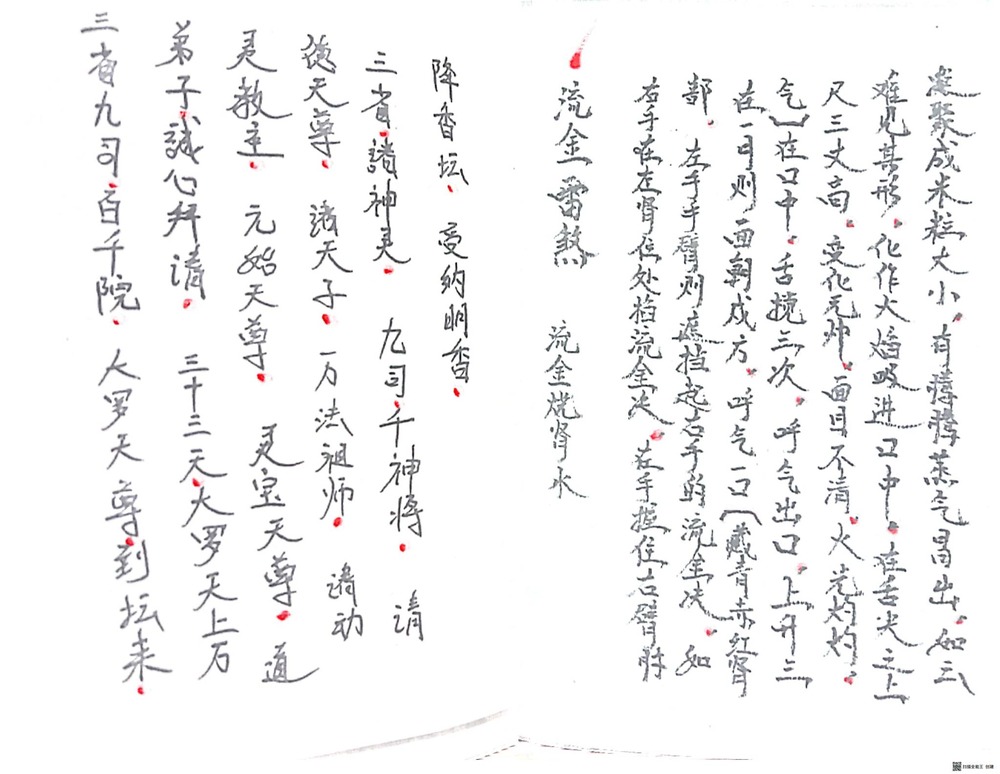 凝聚成米粒大小。有腾腾蒸气冒出。如云
难见其形。化作火焰吸进口中。在舌尖之上
尺三丈高。变化无炉。面目不清。火光灼灼。
气）在口中。舌搅三次。呼气出口。上升三
在一日则面朝戍方。呼气一口（藏青赤红肾
部。左手手臂则遮挡起右手的流金决。如
右手在左肾位处掐流金决。左手握住右臂肘
流金雷煞 流金烧肾水
降香坛。受纳明香。
三省诸神灵。九司千神将。请
德天尊。诸天子。一万法祖师。请动
灵教主。元始天尊。灵宝天尊。道
弟子誠心拜请。三十三天大罗天上万
三省九司百千院。大罗天尊到坛来。
扫描全能王 创建